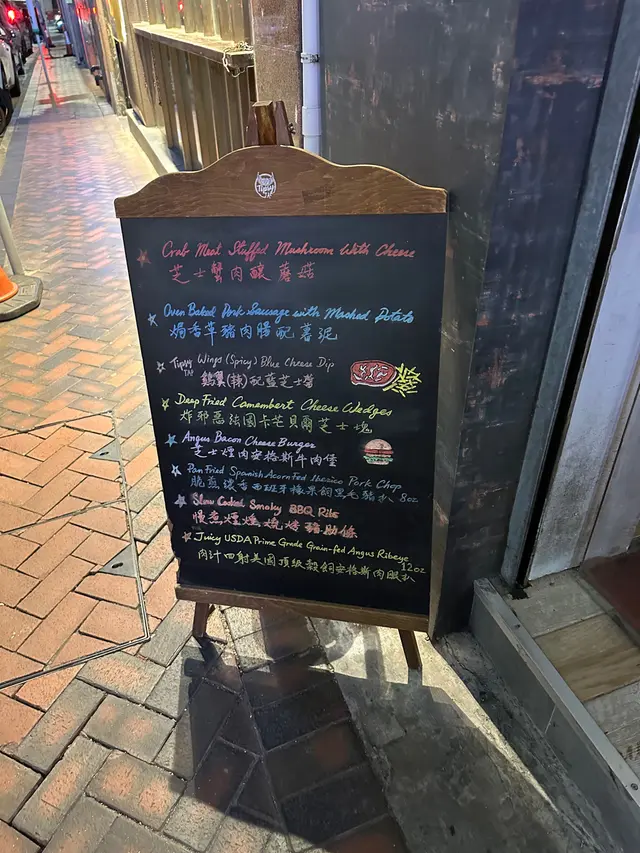 Tipsy
Crab Meat Stuffed Mushroom With Cheese
芝士蟹肉釀蘑菇
Oven Baked Pork Sausage with Mashed Potato
焗香草豬肉腸配薯泥
Tipsy Wings (Spicy) Blue Cheese Dip
鷄翼(辣)配藍芝士醬
Deep Fried Camembert Cheese Wedges
炸邪惡法國卡芒貝爾芝士塊
Angus Bacon Cheese Burger
芝士煙肉安格斯牛肉堡
Pan Fried Spanish Acorn Fed Iberico Pork Chop
脆煎淡香西班牙橡果飼黑毛豬扒 8oz
Slow Cooked Smoky BBQ Ribs
慢煮煙燻燒烤豬肋條
Juicy USDA Prime Grade Grain-fed Angus Ribeye
肉汁四射美國頂級穀飼安格斯肉眼扒 12oz